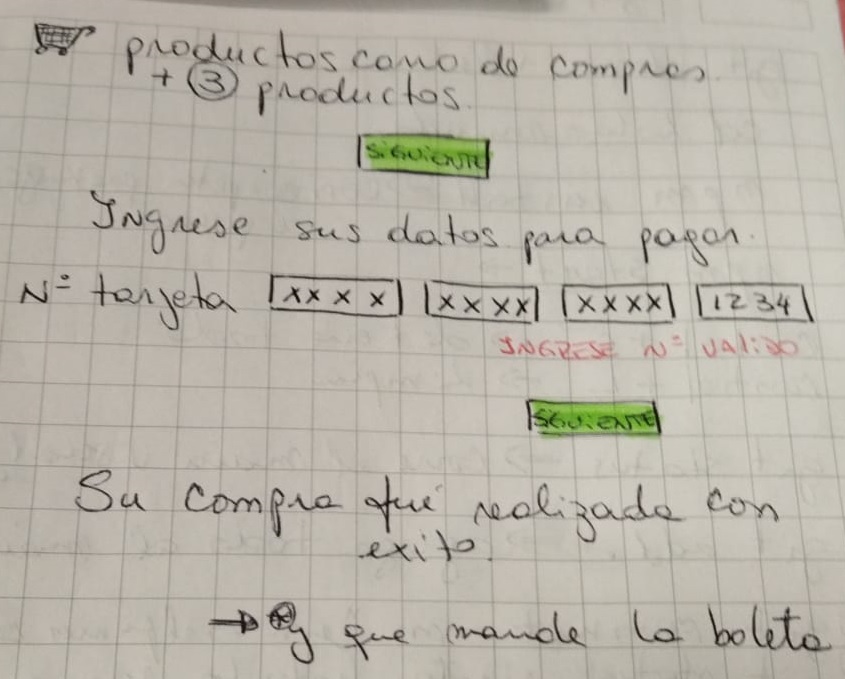 productos carro de compras
+ 3 productos.
SIGUIENTE
Ingrese sus datos para pagar.
N° tarjeta XXXX XXXX XXXX 1234
INGRESE N° VALIDO
SIGUIENTE
Su compra fue realizada con
exito.
→ y que mande la boleta